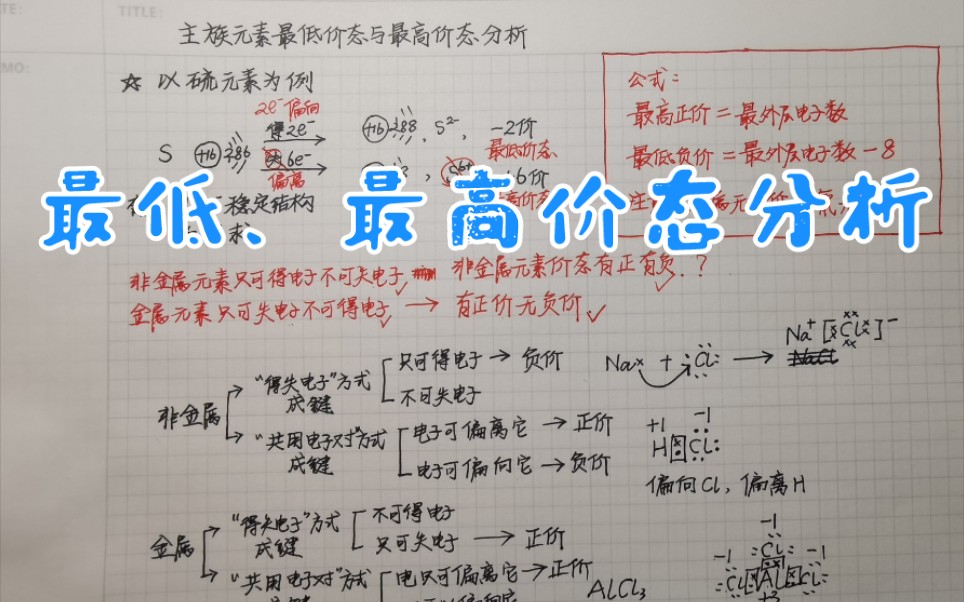 TITLE:
主族元素最低价态与最高价态分析
☆ 以硫元素为例
2e⁻偏向
得2e⁻
+16 2 8 8 , S²⁻, -2价
最低价态
S +16 2 8 6
失6e⁻
偏离
S⁶⁺ +6价
稳定结构
公式:
最高正价=最外层电子数
最低负价=最外层电子数-8
最低、最高价态分析
非金属元素只可得电子不可失电子✓ 非金属元素价态有正有负.?✓
金属元素只可失电子不可得电子✓ → 有正价无负价✓
非金属
"得失电子"方式成键
只可得电子→负价
不可失电子
Na× + Cl → Na⁺[×Cl×]⁻
"共用电子对"方式成键
电子可偏离它→正价
电子可偏向它→负价
+1 -1
H Cl
偏向Cl, 偏离H
金属
"得失电子"方式成键
不可得电子
只可失电子→正价
"共用电子对"方式
电只可偏离它→正价
AlCl₃
-1
-1 Cl -1
Cl Al Cl
+3